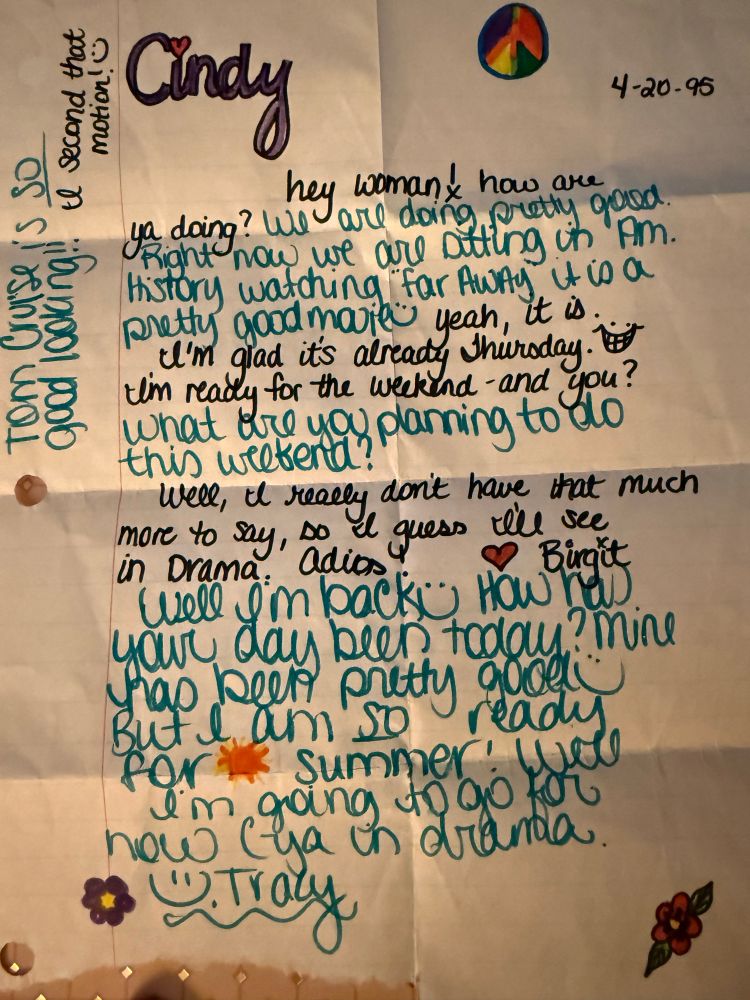 Cindy
4-20-95
hey woman! how are
ya doing? We are doing pretty good.
Right now we are sitting in Am.
History watching "far AwAy" it is a
pretty good movie yeah, it is.
I'm glad it's already Thursday.
I'm ready for the weekend - and you?
What are you planning to do
this weekend?
Well, I really don't have that much
more to say, so I guess I'll see
in Drama. Adios!
Birgit
Well I'm back How has
your day been today? Mine
has been pretty good
But I am SO ready
for summer! Well
I'm going to go for
now C-ya in drama.
Tracy
Tom Cruise is SO
good looking!!
I second that
motion!